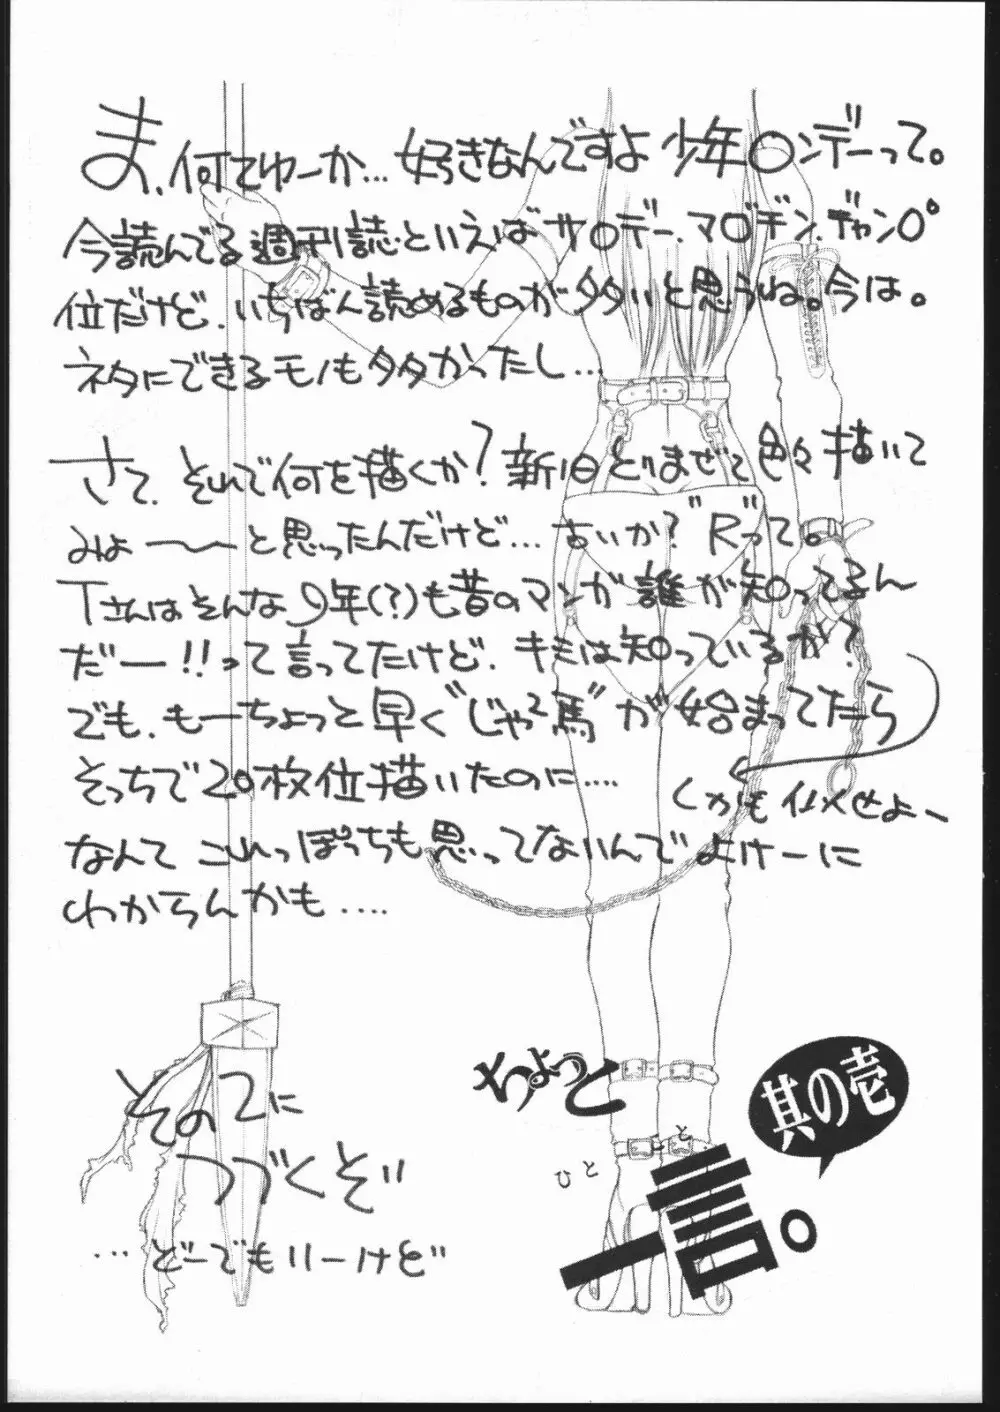 ま、何てゆーか…好きなんですよ 少年〇ンデーって。
今読んでる週刊誌といえばサ〇デー、マ〇ヂン、ヂャン〇゜
位だけど、いちばん読めるものが多いと思うね。今は。
ネタにできるモノも多々かったし…
さて、それで何を描くか？新旧とりまぜて色々描いて
みよ〜〜と思ったんだけど…古いか？"R"って。
Tさんはそんな9年(？)も昔のマンガ誰が知ってるん
だー!!って言ってたけど、キミは知っているか？
でも、もーちょっと早く"じゃ2馬"が始まってたら
そっちで20枚位描いたのに....
くかも 似せよー
なんて これっぽっちも思ってないんで よけーに
わからんかも....
その2に
つづくぞ!!
…どーでもいーけど!!
ちょっと
其の壱
ひとこと
一言。